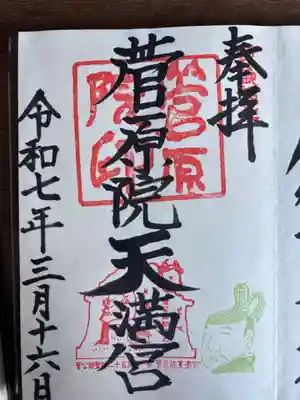 奉拝
菅原院天満宮
令和七年三月十六日
菅原院印